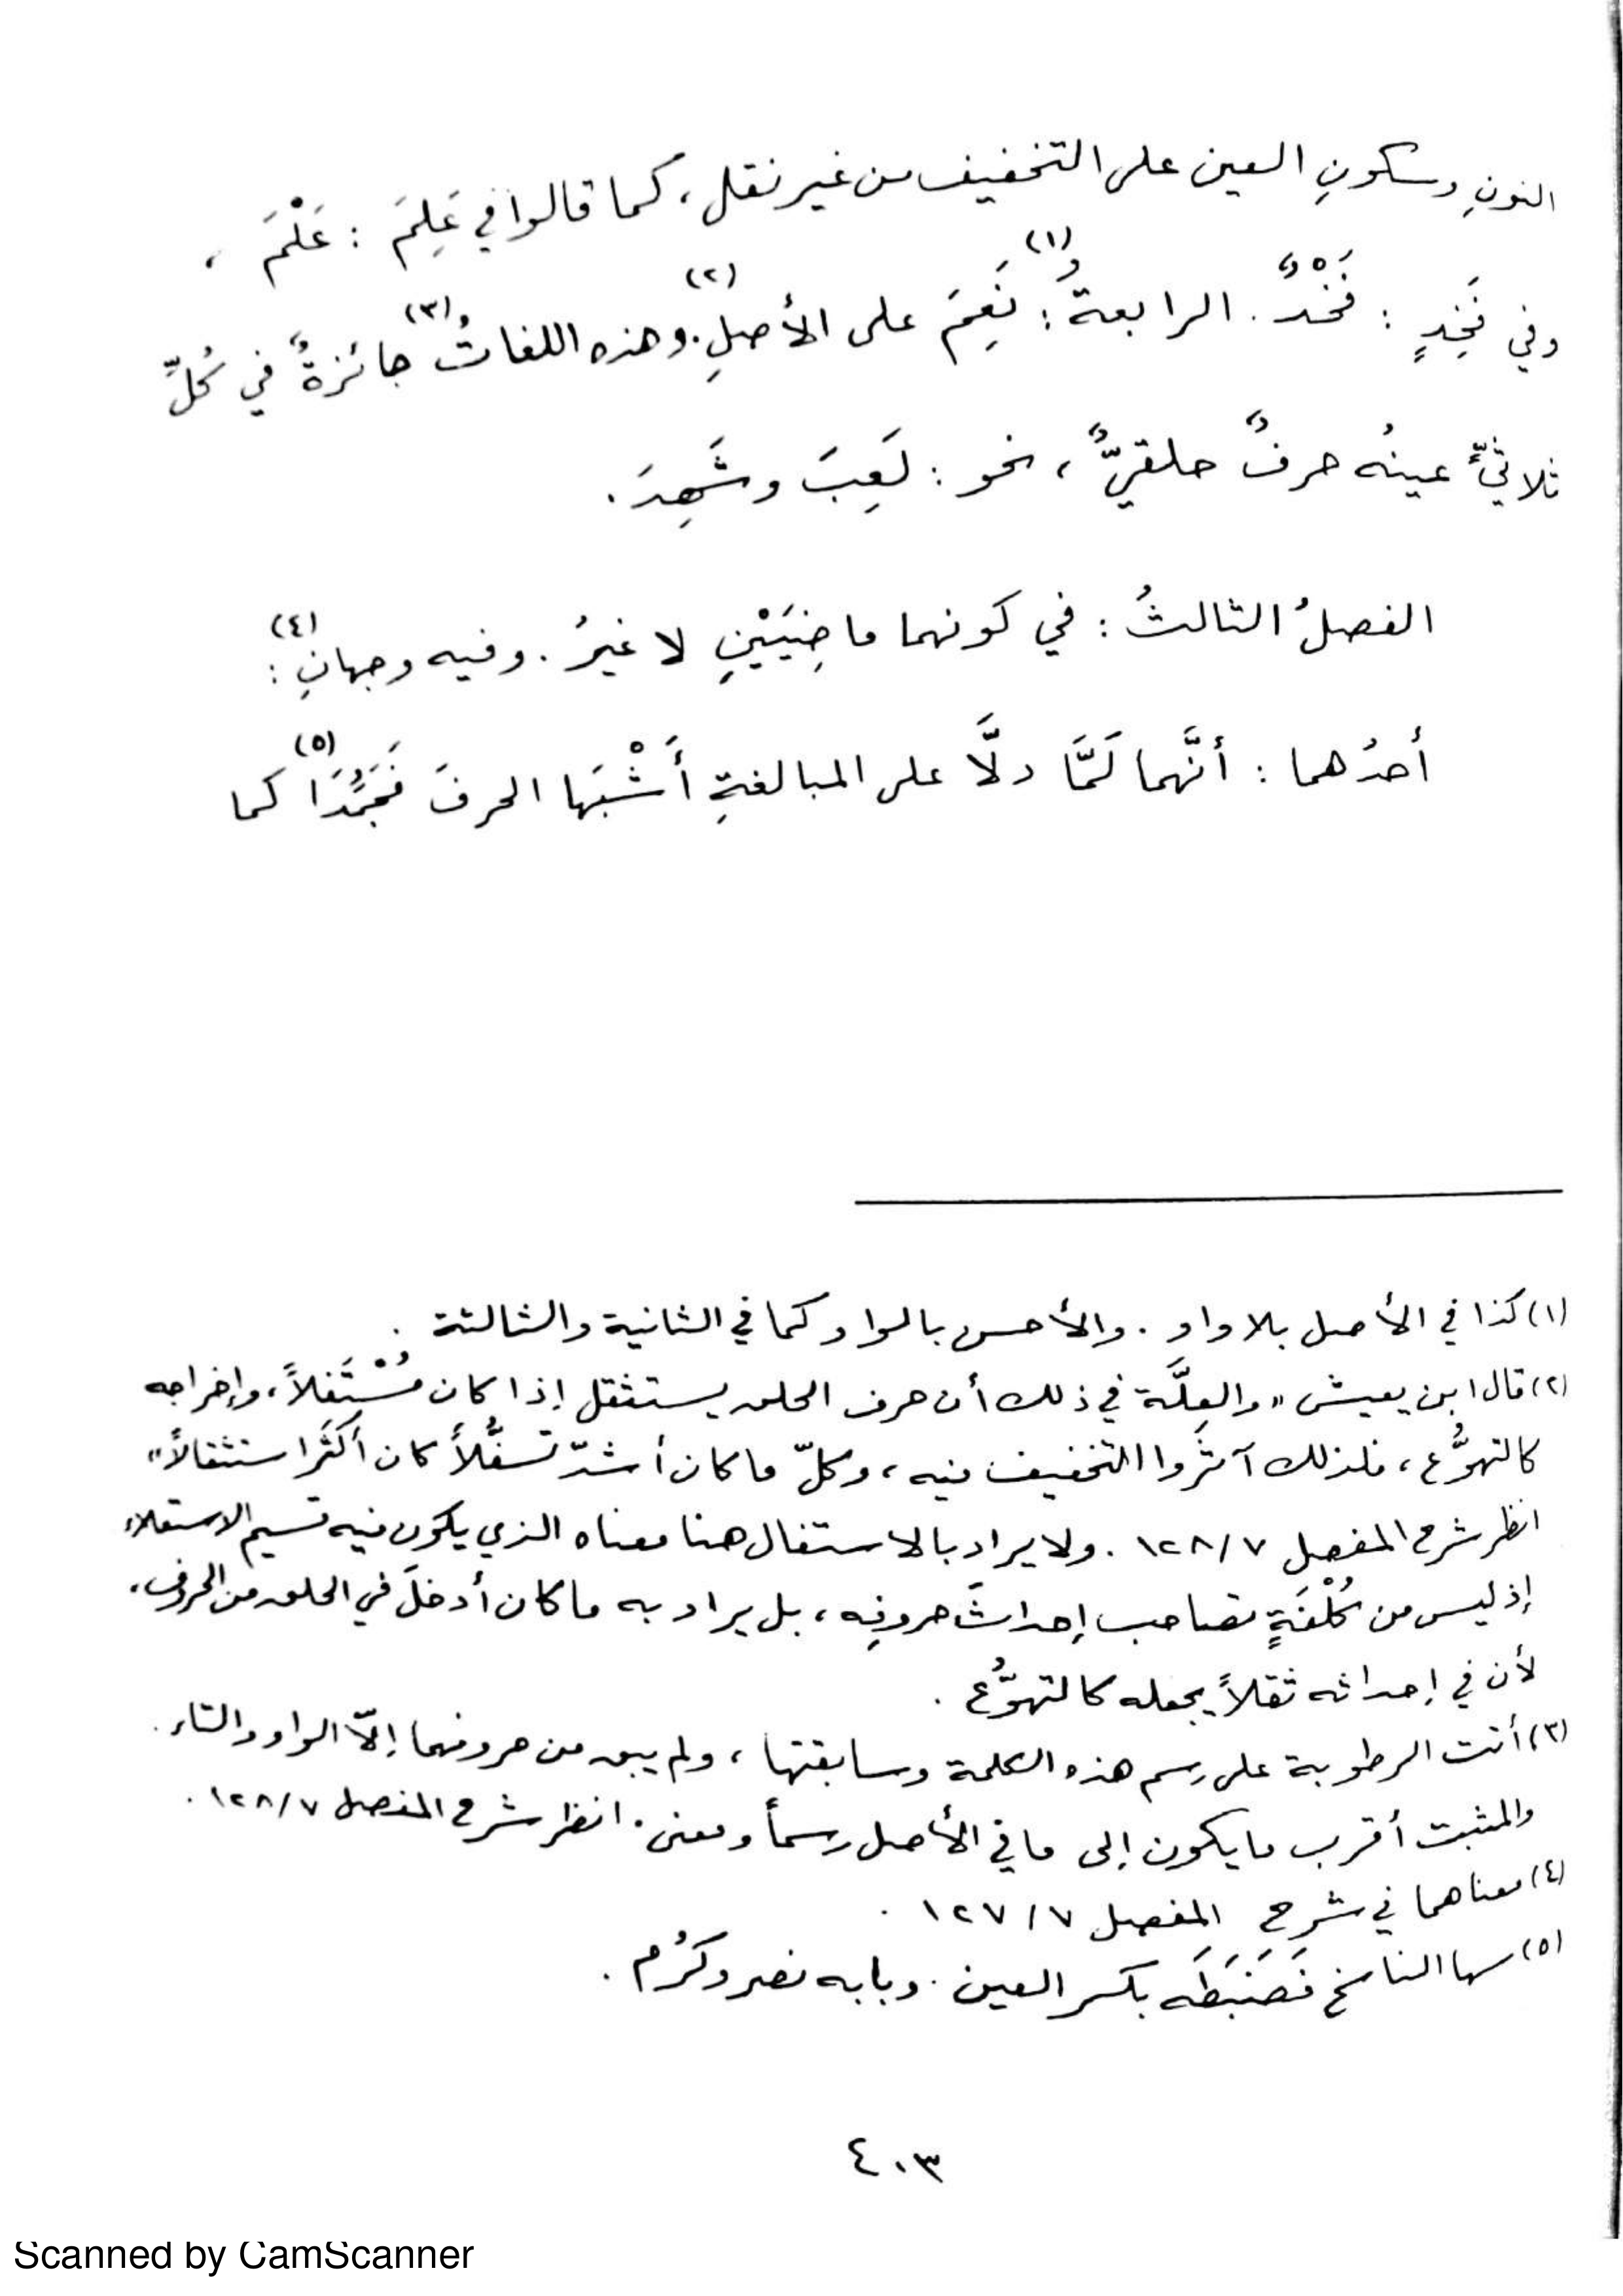 النونِ وسكونِ العين على التخفيف من غير نقل، كما قالوا في عَلِمَ : عَلْمَ ،
وفي فَخِذٍ : فَخْذٌ . الرابعةُ(١) : نَعِمَ على الأصلِ(٢). وهذه اللغاتُ(٣) جائزةٌ في كُلِّ
ثلاثيٍّ عينُه حرفٌ حلقيٌّ ، نحو : لَعِبَ وشَهِدَ .
الفصلُ الثالثُ : في كونهما ماضِيَيْنِ لا غيرُ . وفيه وجهانِ(٤) :
أحدُهما : أنَّهما لَمَّا دلَّا على المبالغةِ أَشْبَها الحرفَ فَجَمُدَا(٥) كما
(١) كذا في الأصل بلا واو . والأحسن بالواو كما في الثانية والثالثة .
(٢) قال ابن يعيش " والعِلَّة في ذلك أن حرف الحلق يستثقل إذا كان مُسْتَفلاً ، وإخراجه
كالتهوُّع ، فلذلك آثَروا التخفيف فيه ، وكلّ ما كان أشدّ تسفُّلاً كان أكثَر استثقالاً "
انظر شرح المفصل ١٢٨/٧ . ولا يراد بالاستفال هنا معناه الذي يكون فيه قسيم الاستعلاء
إذ ليس من كُلْفَةٍ تصاحب إحداثَ حروفِه ، بل يراد به ما كان أدخلَ في الحلق من الحروف،
لأن في إحداثه ثقلاً يجعله كالتهوُّع .
(٣) أتت الرطوبة على رسم هذه الكلمة وسابقتها ، ولم يبق من حروفهما إلّا الواو والتاء .
والمثبت أقرب ما يكون إلى ما في الأصل رسماً ومعنى . انظر شرح المفصل ١٢٨/٧ .
(٤) معناهما في شرح المفصل ١٢٧/٧ .
(٥) سها الناسخ فَضَبَطَه بكسر العين . وبابه نصر وكرُم .
٤٠٣
Scanned by CamScanner